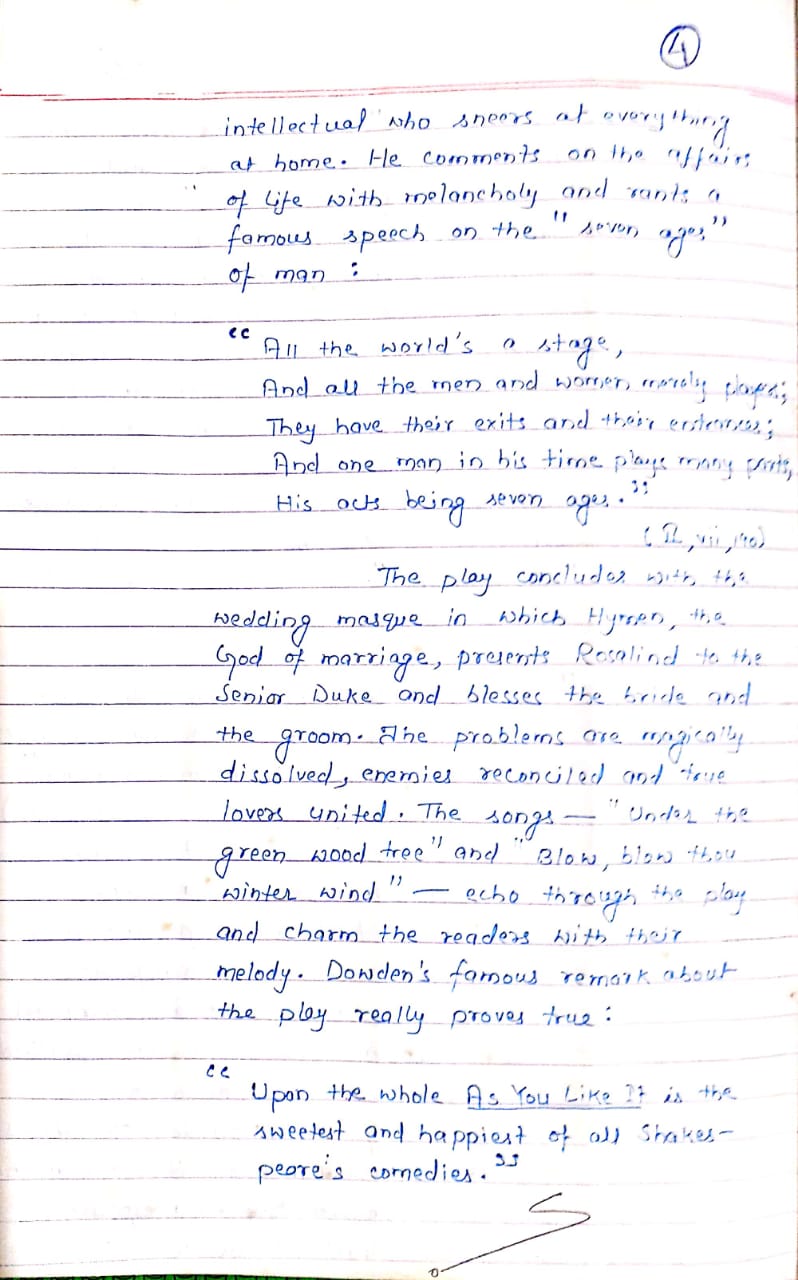 4
intellectual who sneers at everything
at home. He comments on the affairs
of life with melancholy and rants a
famous speech on the "seven ages"
of man :
"All the world's a stage,
And all the men and women, merely players;
They have their exits and their entrances;
And one man in his time plays many parts,
His acts being seven ages."
(II, vii, 140)
The play concludes with the
wedding masque in which Hymen, the
God of marriage, presents Rosalind to the
Senior Duke and blesses the bride and
the groom. The problems are magically
dissolved, enemies reconciled and true
lovers united. The songs — "Under the
green wood tree" and "Blow, blow thou
winter wind" — echo through the play
and charm the readers with their
melody. Dowden's famous remark about
the play really proves true :
"Upon the whole As You Like It is the
sweetest and happiest of all Shakes-
peare's comedies."